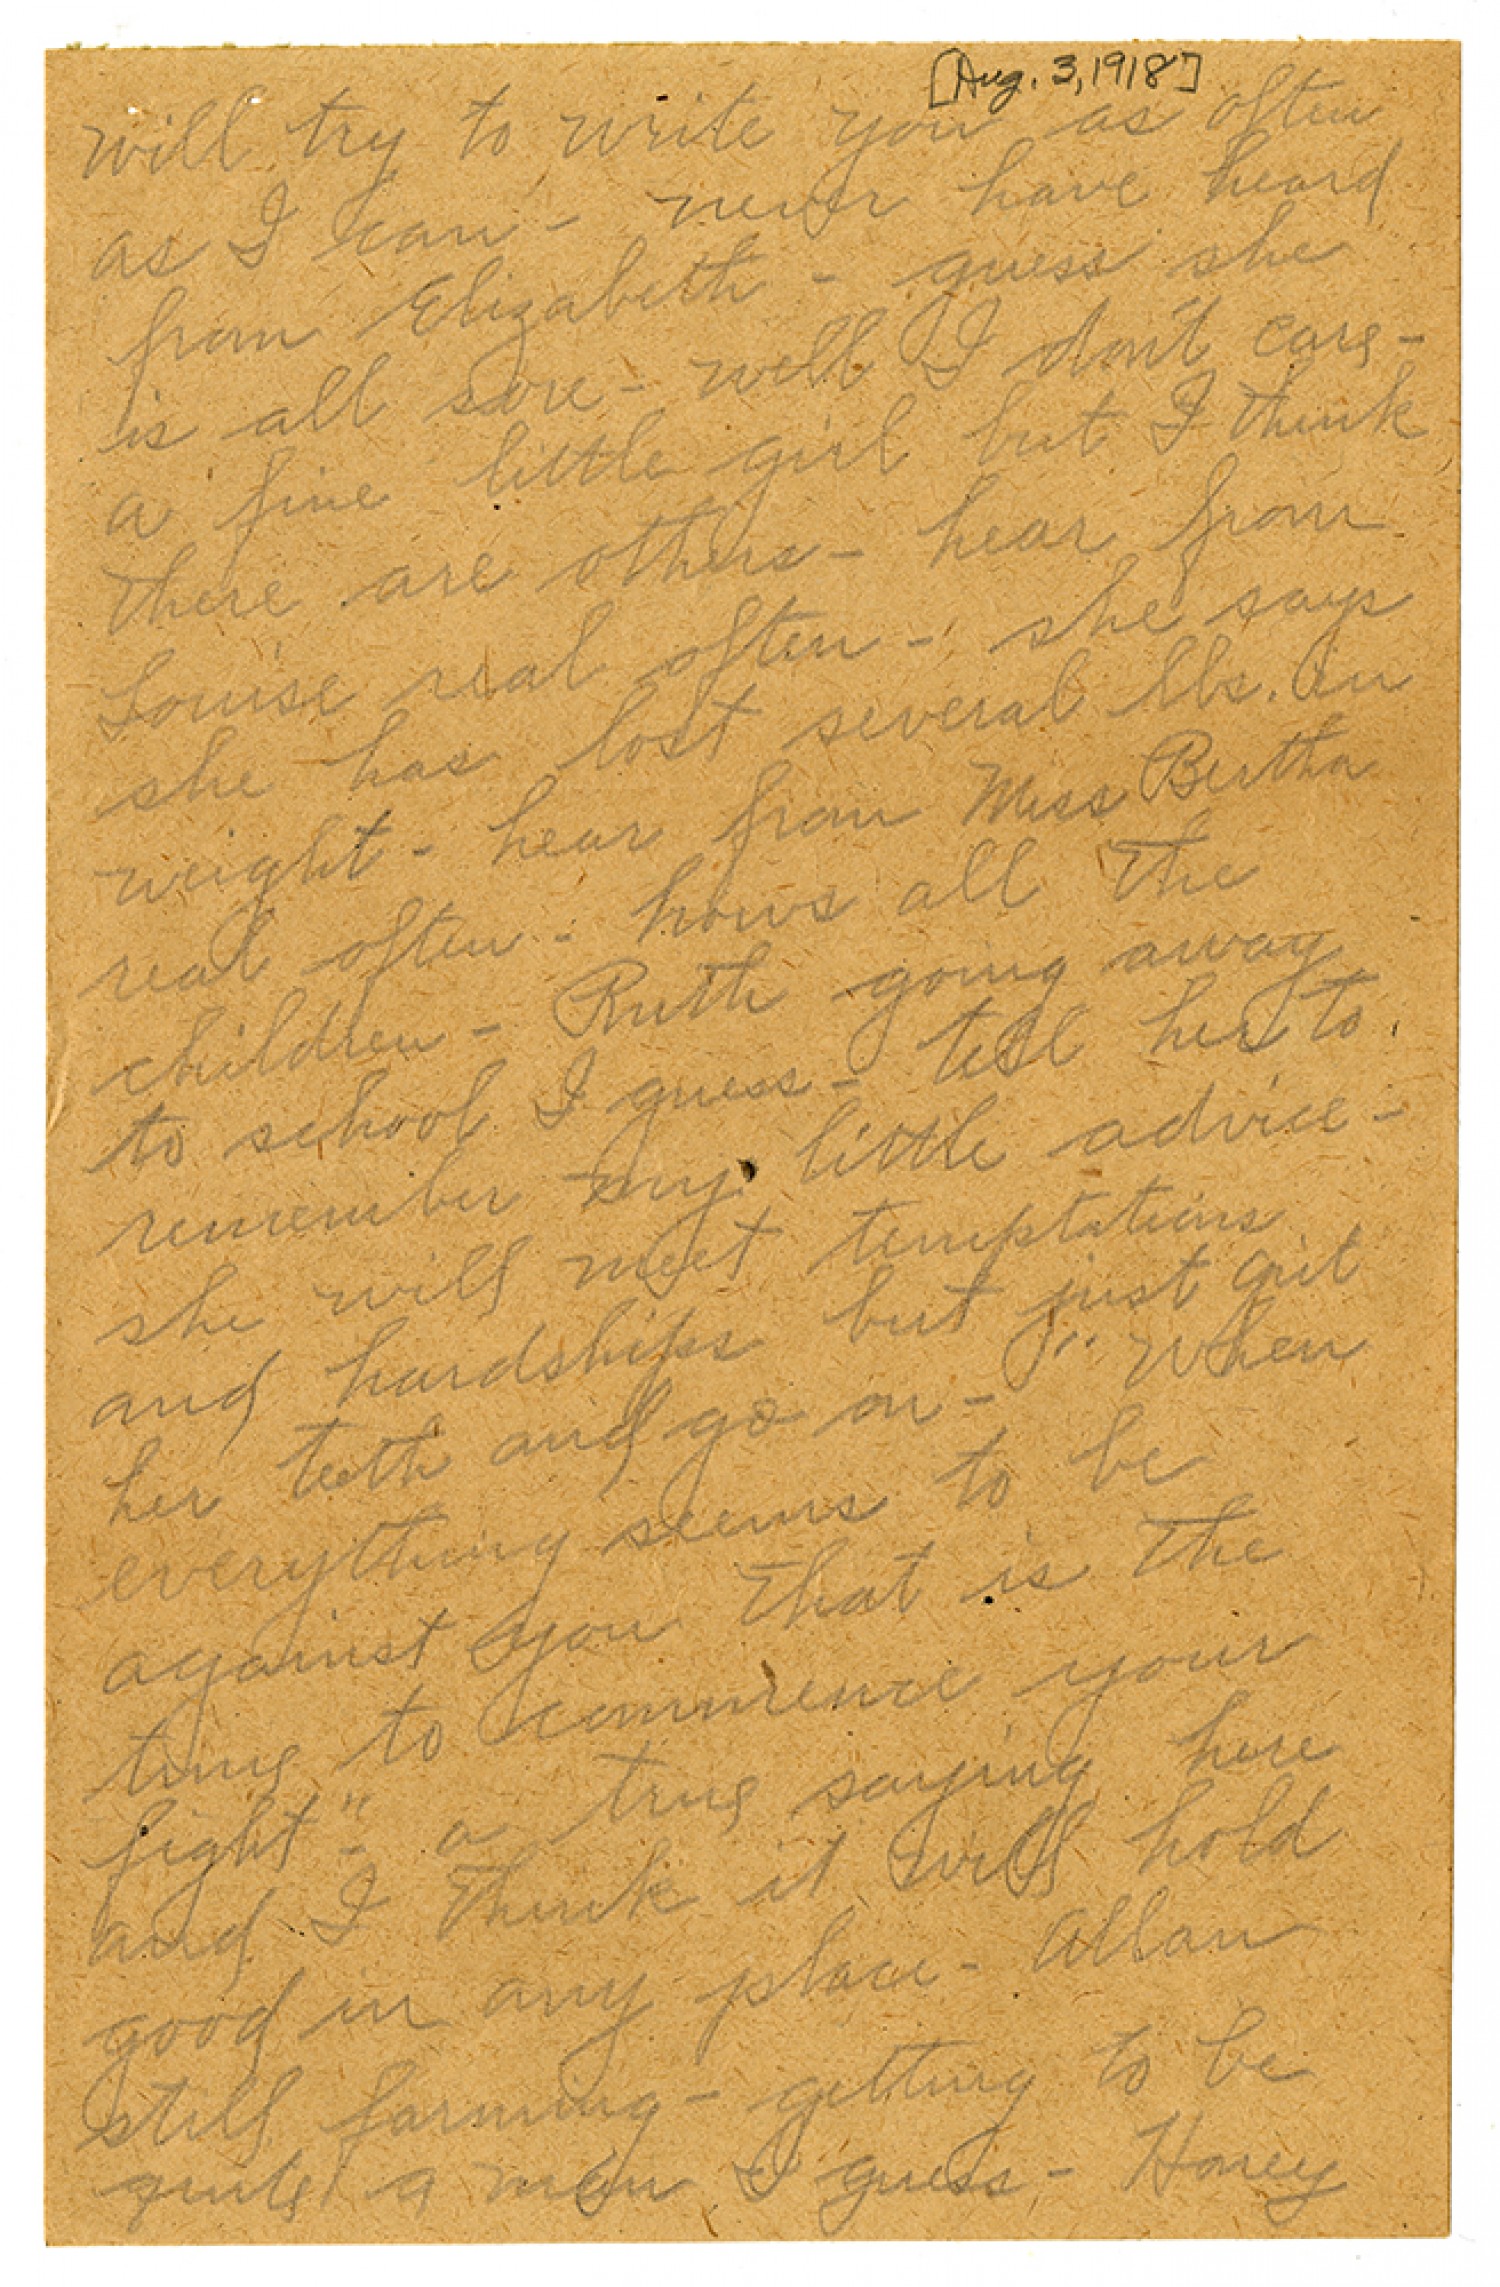 [Aug. 3, 1918]
will try to write you as often
as I can - never have heard
from Elizabeth - guess she
is all sore - well I don't care -
a fine little girl but I think
there are others - hear from
Louise real often - she says
she has lost several lbs. in
weight - hear from Miss Bertha
real often - hows all the
children - Ruth going away
to school I guess - tell her to
remember my little advice -
she will meet temptations
and hardships but just grit
her teeth and go on - "When
everything seems to be
against you that is the
time to commence your
fight" - a true saying here
and I think it will hold
good in any place - Allan
still farming - getting to be
quite a man I guess - Honey